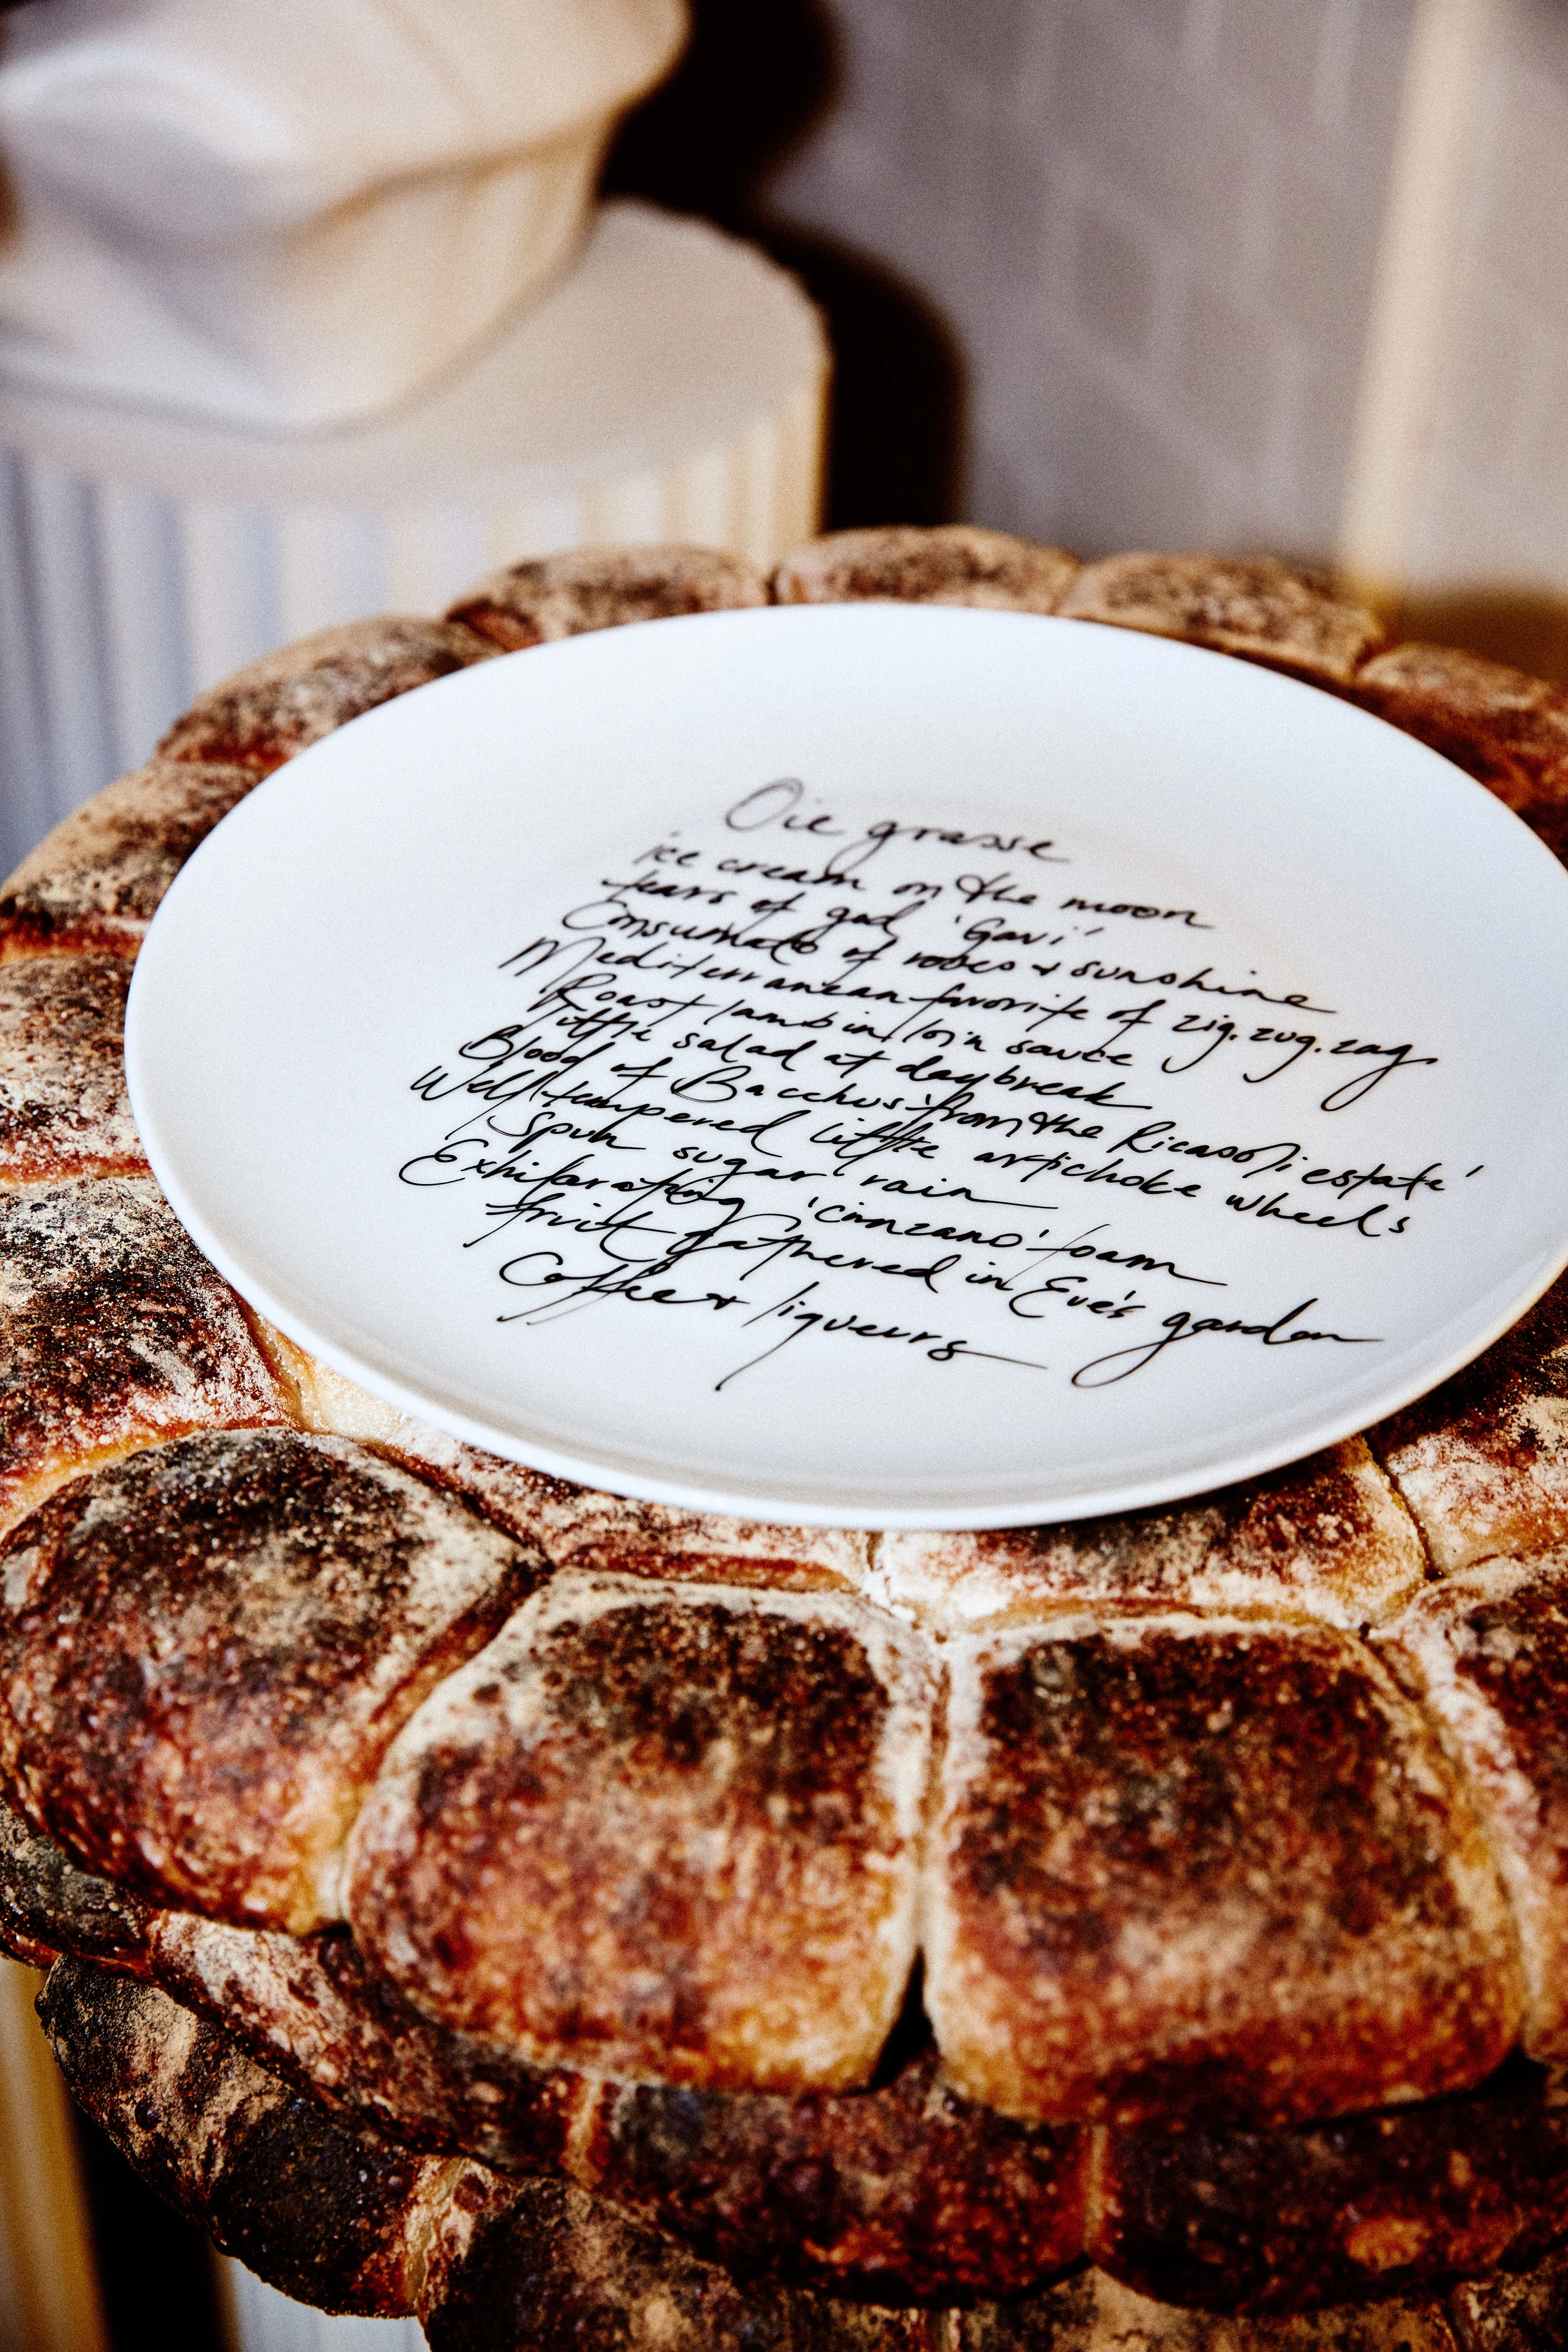 Oie grasse
ice cream on the moon
tears of god 'Gavi'
Consumato of roses & sunshine
Mediterranean favorite of zig.zug.zag
Roast lamb in loin sauce
little salad at daybreak
Blood of Bacchus 'from the Ricasoli estate'
Well tempered little artichoke wheels
Spun sugar rain
Exhilarating 'cinzano' foam
fruit gathered in Eve's garden
Coffee & liqueurs